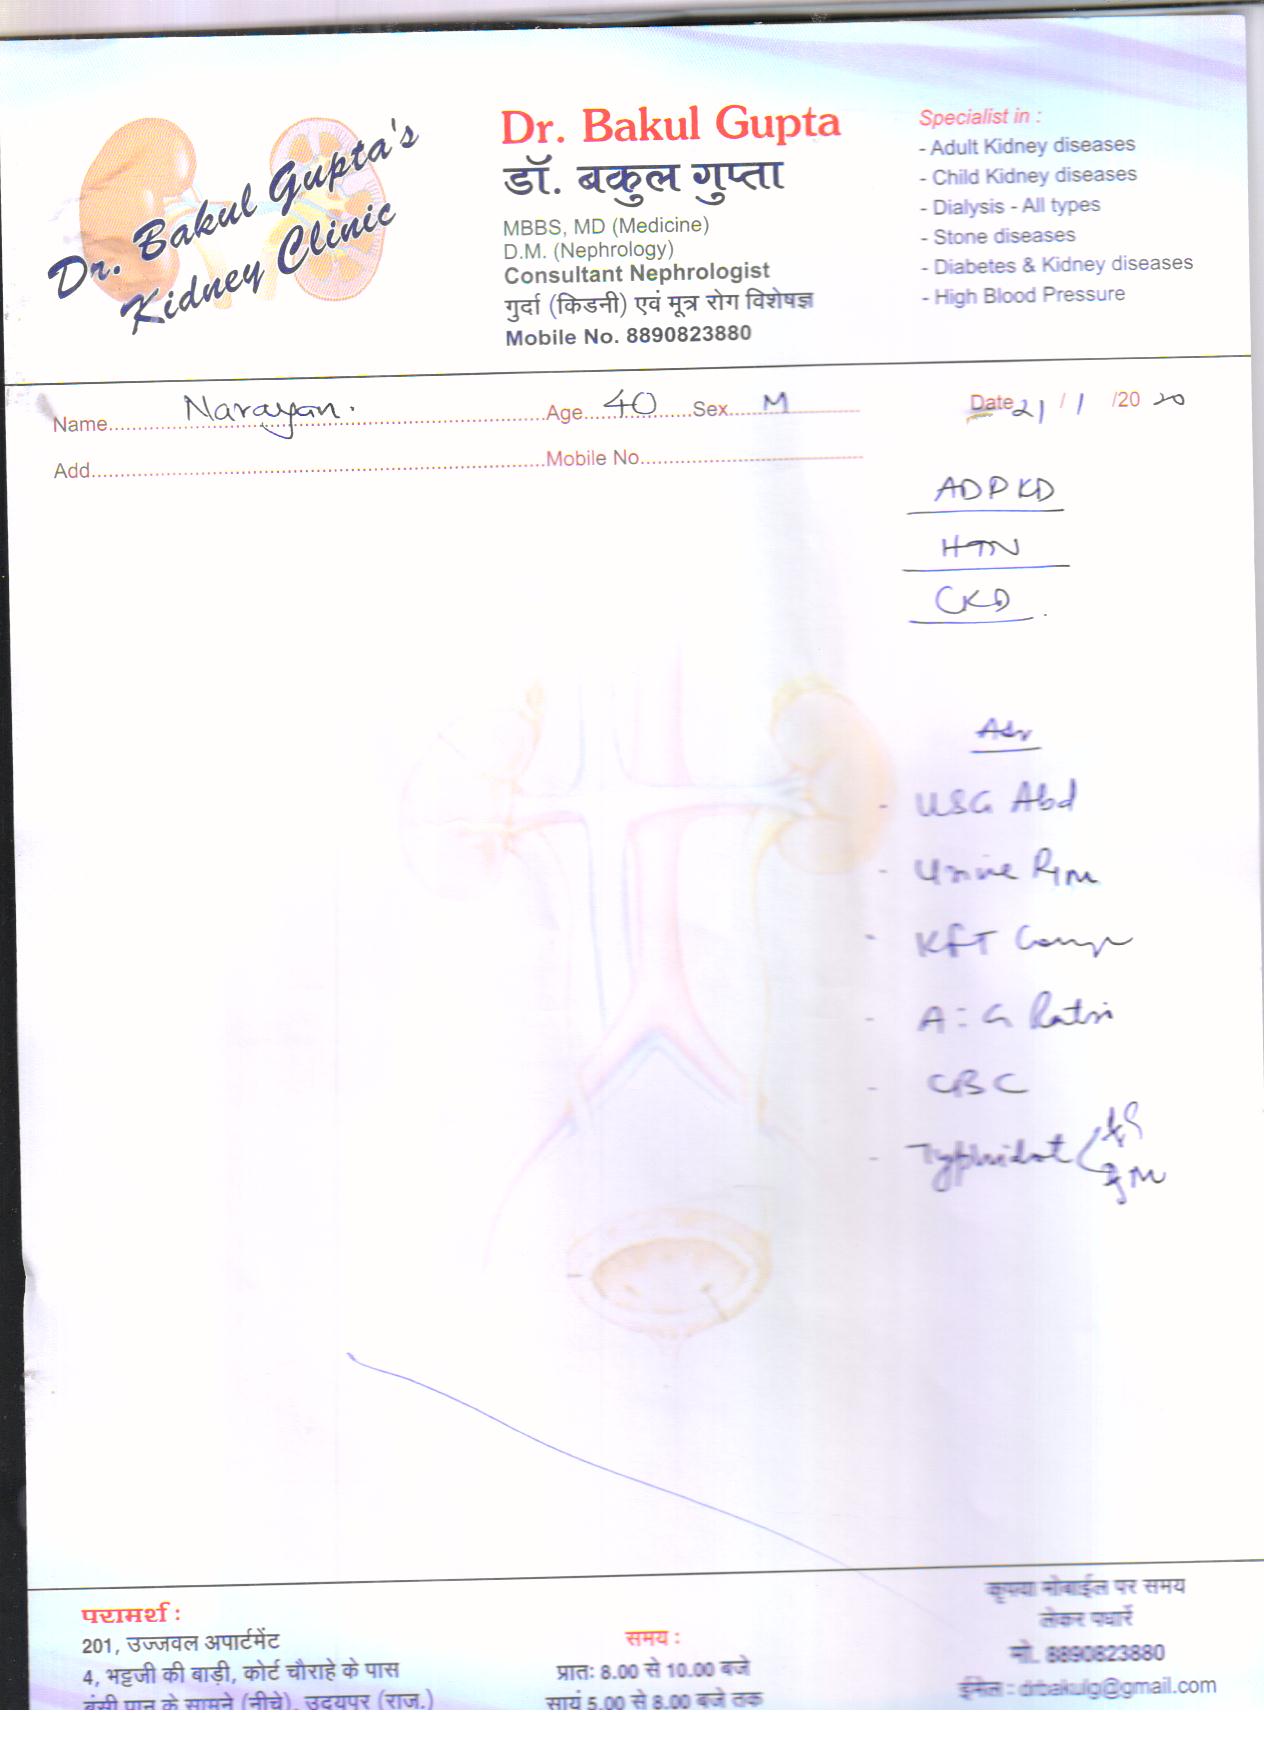 Dr. Bakul Gupta's
Kidney Clinic
Dr. Bakul Gupta
डॉ. बकुल गुप्ता
MBBS, MD (Medicine)
D.M. (Nephrology)
Consultant Nephrologist
गुर्दा (किडनी) एवं मूत्र रोग विशेषज्ञ
Mobile No. 8890823880
Specialist in :
- Adult Kidney diseases
- Child Kidney diseases
- Dialysis - All types
- Stone diseases
- Diabetes & Kidney diseases
- High Blood Pressure
Name Narayan. Age 40 Sex M Date 21/1/2020
Add. Mobile No.
ADPKD
HTN
CKD
Adv
- USG Abd
- Urine R/M
- KFT Comp
- A:G Ratio
- CBC
- Typhidot IgG
IgM
परामर्श :
201, उज्जवल अपार्टमेंट
4, भट्टजी की बाड़ी, कोर्ट चौराहे के पास
बंसी पान के सामने (नीचे), उदयपुर (राज.)
समय :
प्रातः 8.00 से 10.00 बजे
सायं 5.00 से 8.00 बजे तक
कृपया मोबाईल पर समय
लेकर पधारें
मो. 8890823880
ईमेल : drbakulg@gmail.com